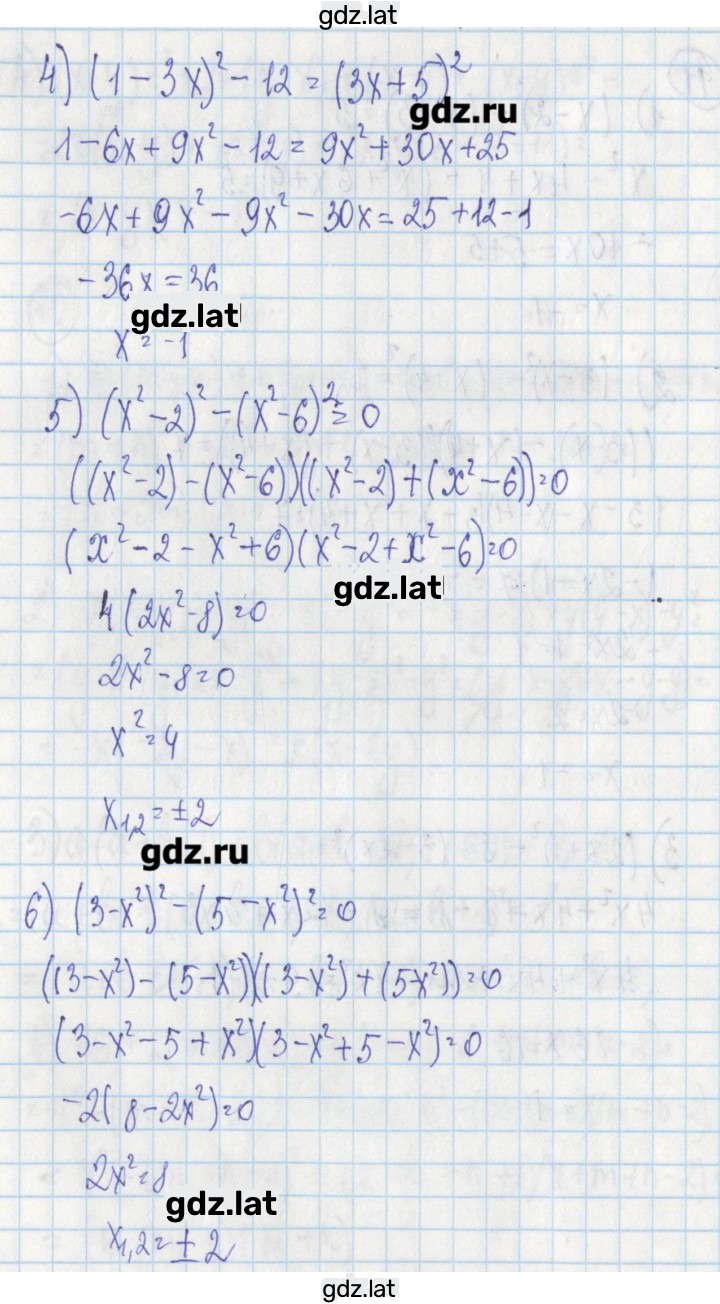 gdz.lat
4) (1 - 3x)² - 12 = (3x + 5)²
gdz.ru
1 - 6x + 9x² - 12 = 9x² + 30x + 25
-6x + 9x² - 9x² - 30x = 25 + 12 - 1
-36x = 36
gdz.lat
x = -1
5) (x² - 2)² - (x² - 6)² = 0
((x² - 2) - (x² - 6))((x² - 2) + (x² - 6)) = 0
(x² - 2 - x² + 6)(x² - 2 + x² - 6) = 0
gdz.lat
4(2x² - 8) = 0
2x² - 8 = 0
x² = 4
x₁,₂ = ±2
gdz.ru
6) (3 - x²)² - (5 - x²)² = 0
((3 - x²) - (5 - x²))((3 - x²) + (5 - x²)) = 0
(3 - x² - 5 + x²)(3 - x² + 5 - x²) = 0
-2(8 - 2x²) = 0
2x² = 8
gdz.lat
x₁,₂ = ±2
gdz.lat